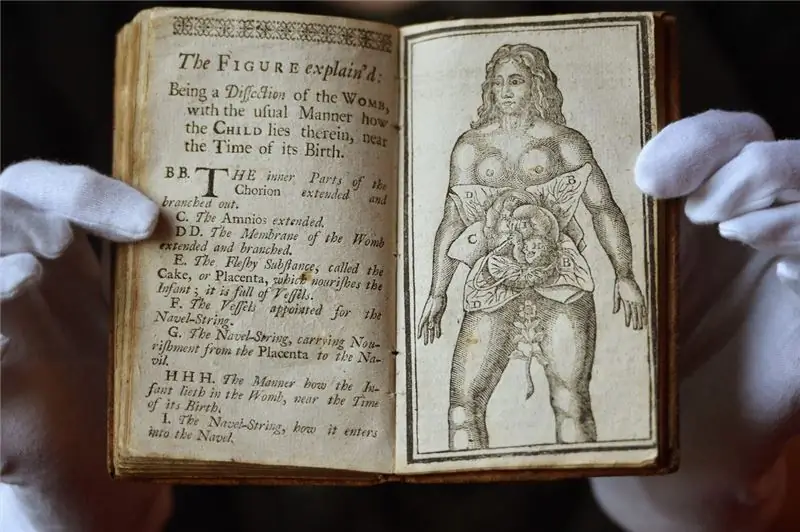 The FIGURE explain'd:
Being a Diſſection of the WOMB,
with the uſual Manner how
the CHILD lies therein, near
the Time of its Birth.
B B. THE inner Parts of the
Chorion extended and
branched out.
C. The Amnios extended.
D D. The Membrane of the Womb
extended and branched.
E. The Fleſhy Subſtance, called the
Cake, or Placenta, which nouriſhes the
Infant; it is full of Veſſels.
F. The Veſſels appointed for the
Navel-String.
G. The Navel-String, carrying Nou-
riſhment from the Placenta to the Na-
vil.
H H H. The Manner how the In-
fant lieth in the Womb, near the Time
of its Birth.
I. The Navel-String, how it enters
into the Navel.
D
B
C
B
D
D